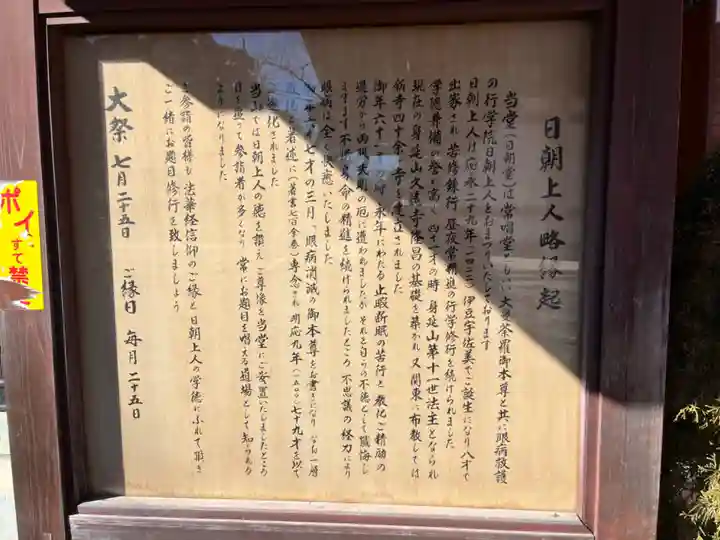 日朝上人略縁起
当堂(日朝堂)は常唱堂ともいい 大曼荼羅御本尊と共に眼病救護
の行学院日朝上人をおまつりいたしております
日朝上人は 応永二十九年(一四二二) 伊豆宇佐美でご誕生になり 八才で
出家され 苦修錬行 昼夜常精進の行学修行を続けられました
学徳兼備の誉も高く 四十一才の時 身延山第十一世法主となられ
現在の身延山久遠寺隆昌の基礎を築かれ 又 関東に布教しては
新寺四十余ヶ寺を建立されました
御年六十一才の時 永年にわたる止暇断眠の苦行と教化ご精励の
過分から両眼失明の厄に遭われましたが それを自らの不徳として懺悔し
ますます不惜身命の精進を続けられましたところ 不思議の経力により
眼病は全く快癒いたしました
七才の三月、眼病消滅の御本尊をお書きになり なお一層
教化と著述に(著書七百余巻)専念され 明応九年(一五〇〇)七十九才を以て
遷化されました
当山では日朝上人の徳を讃え ご尊像を当堂にご安置いたしましたところ
日を追って参詣者が多くなり 常にお題目を唱える道場として知られる
ようになりました
ご参詣の皆様も 法華経信仰のご縁と 日朝上人の学徳にふれて頂き
ご一緒にお題目修行を致しましょう
大祭 七月二十五日 ご縁日 毎月二十五日
ポイ
すて禁